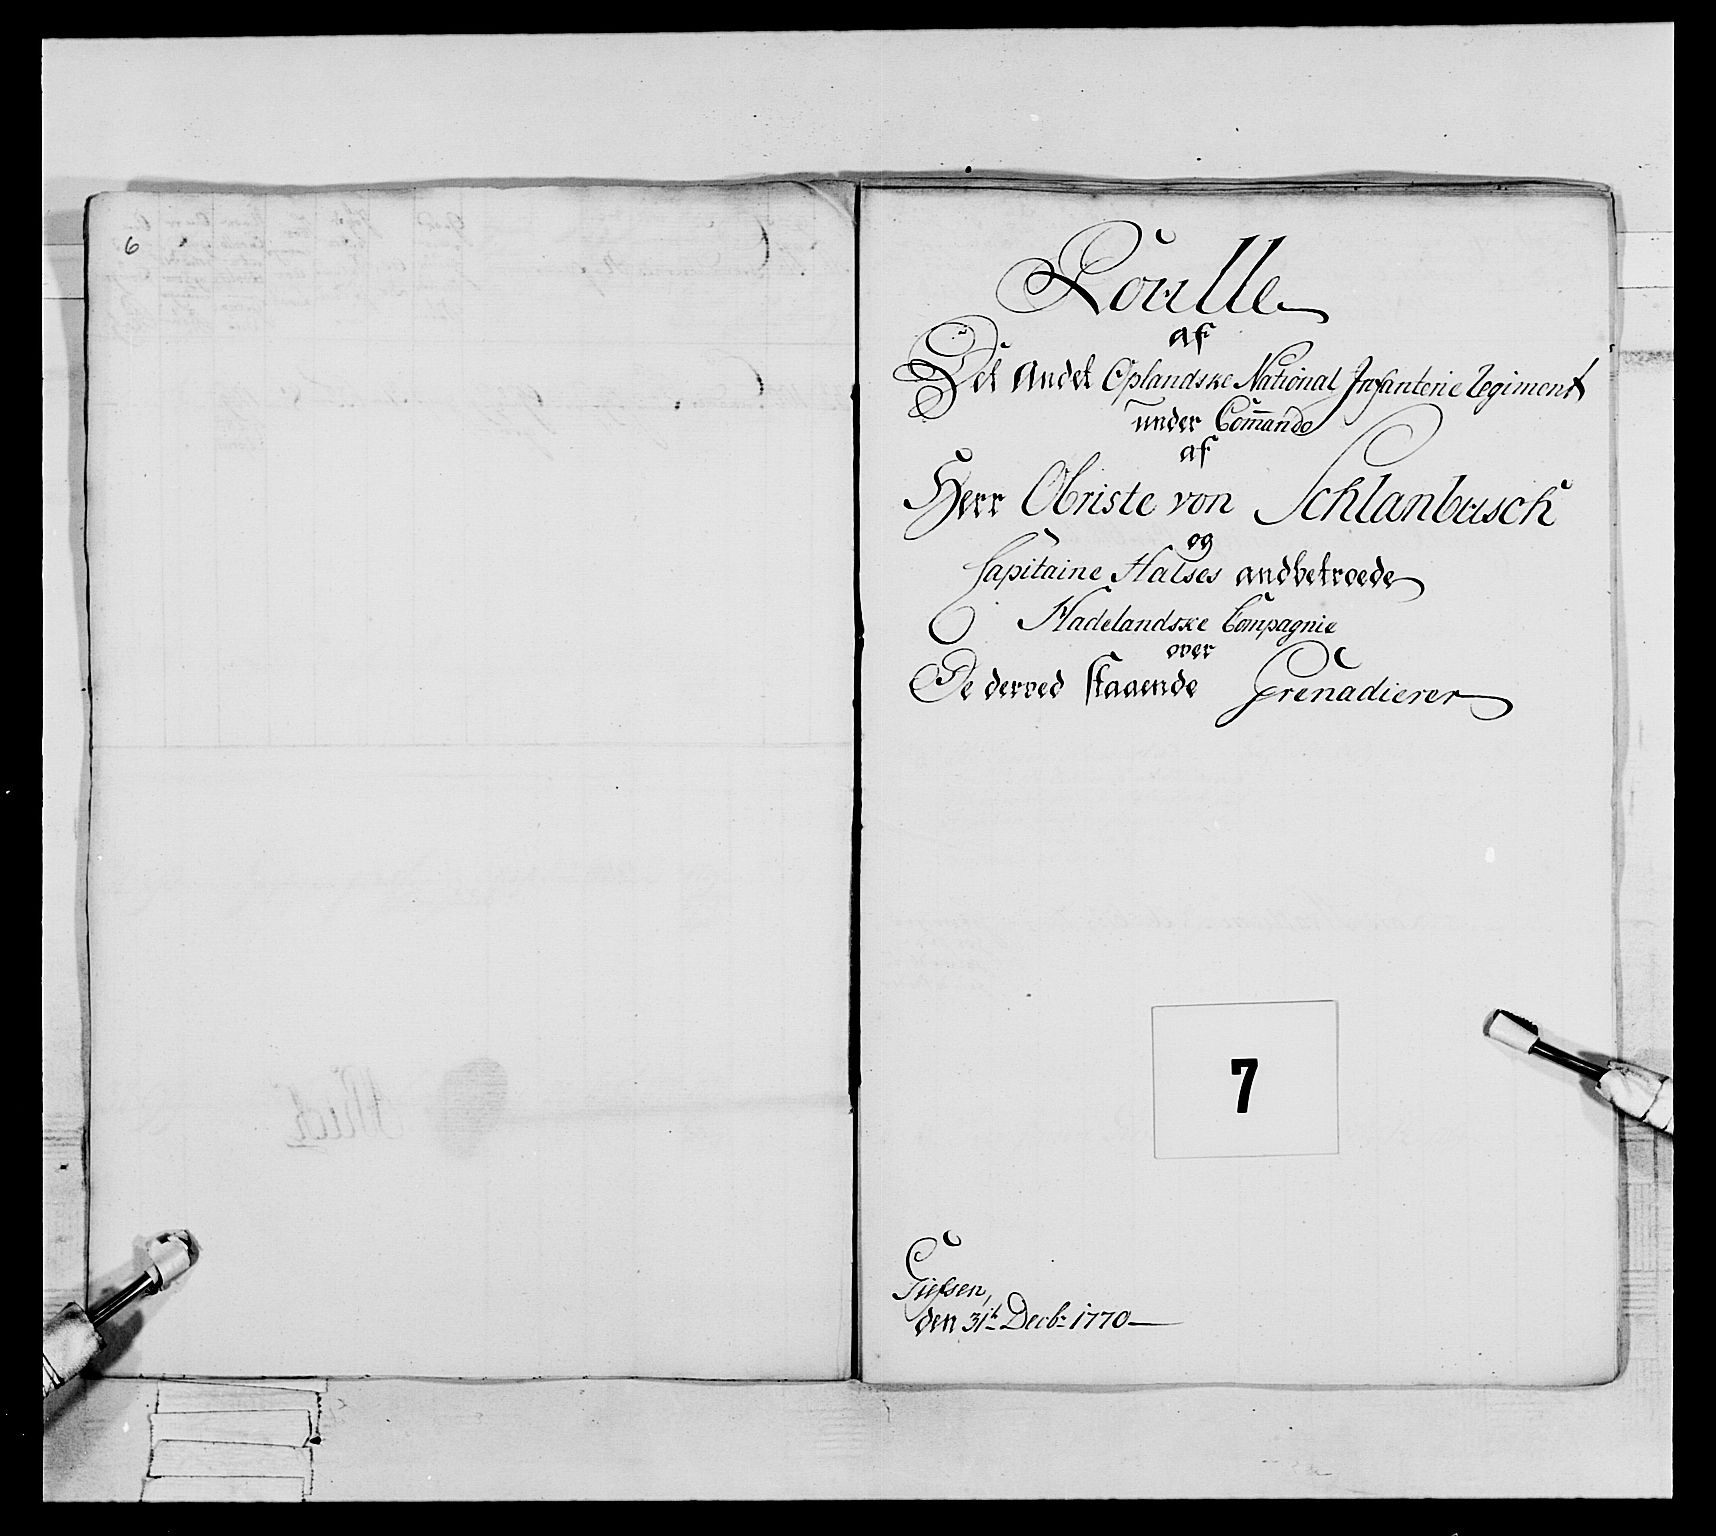 6
Roulle
af
Det Andet Oplandske National Infanterie Regiment
under Com̄ando
af
Herr Obriste von Schlanbusch
og
Capitaine Halses andbetroede
Hadelandske Compagnie
over
De derved staaende Grenadierer
7
den 31t Decbr 1770